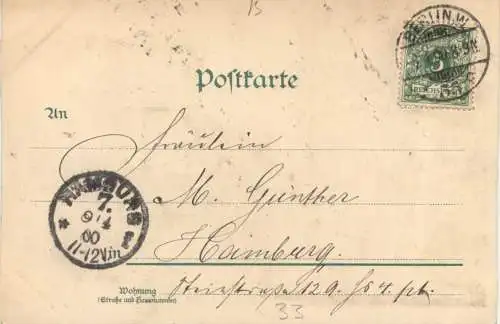 B
BERLIN.W.
REICHSPOST
Postkarte
An
Fräulein
M. Günther
Hamburg.
HAMBURG
7.
4
00
11-12Vm
Wohnung
(Straße und Hausnummer)
Steinstrasse 129
33